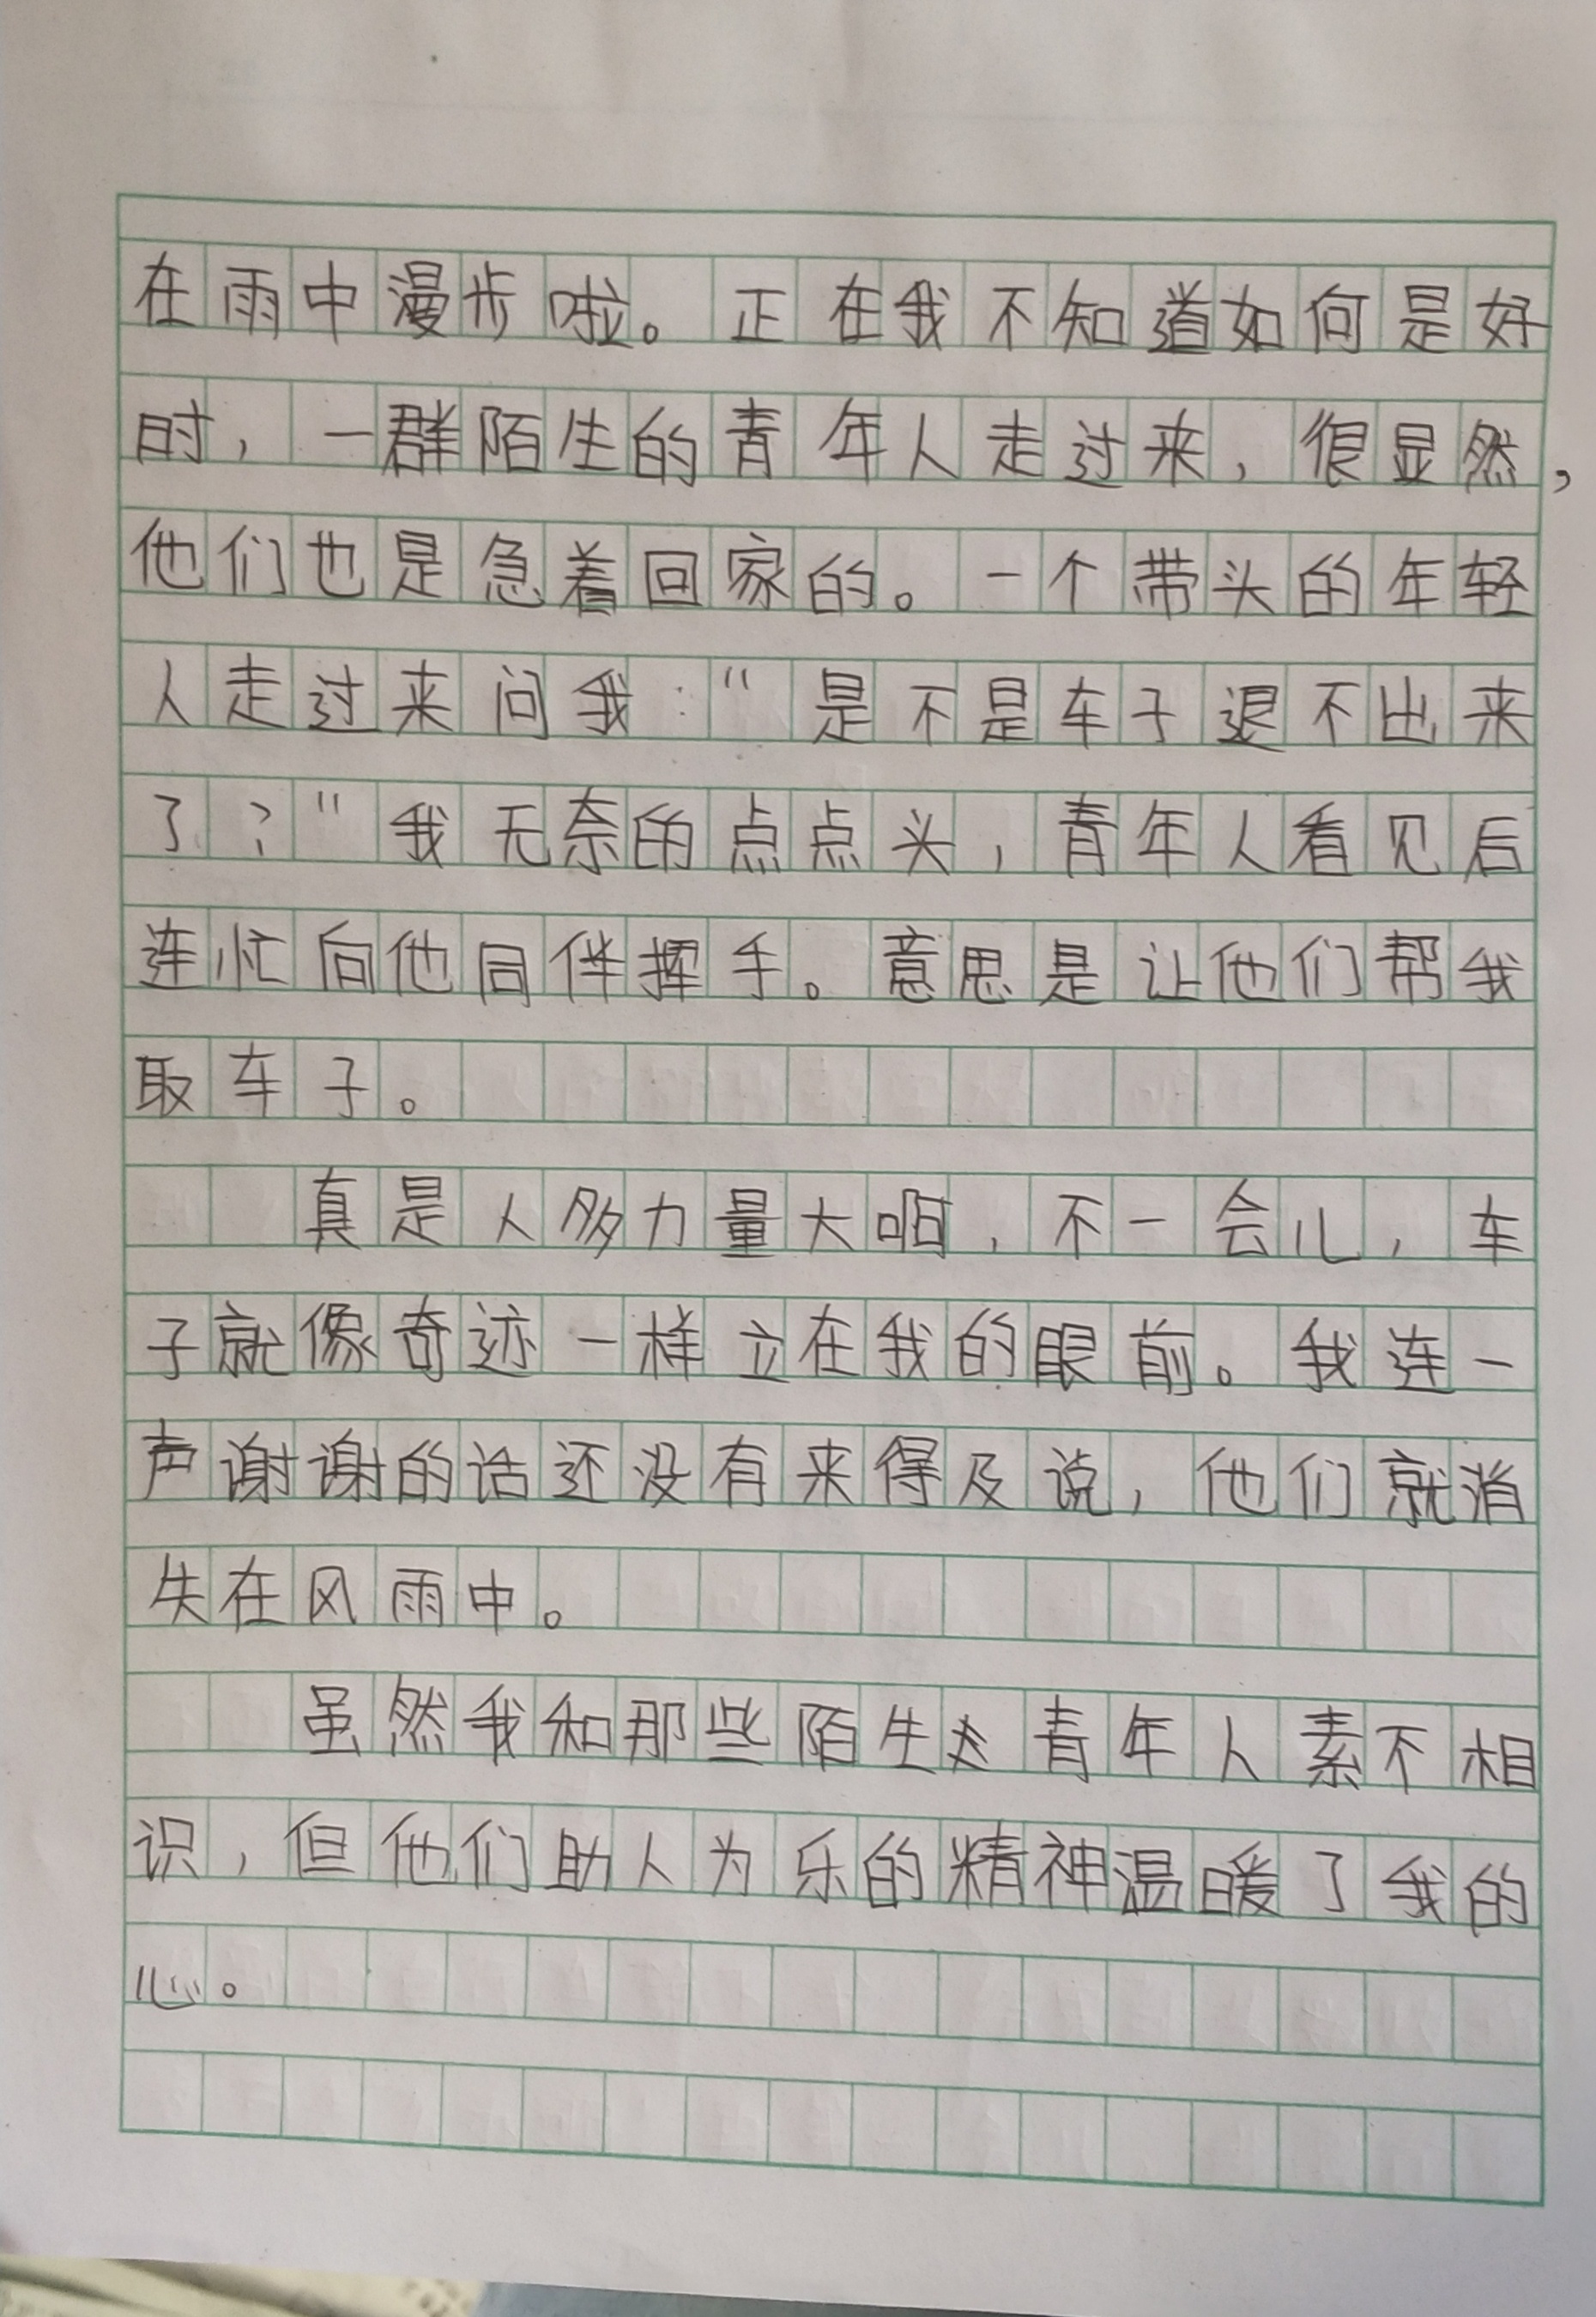 在雨中漫步啦。正在我不知道如何是好
时，一群陌生的青年人走过来，很显然，
他们也是急着回家的。一个带头的年轻
人走过来问我："是不是车子退不出来
了？"我无奈的点点头，青年人看见后
连忙向他同伴挥手。意思是让他们帮我
取车子。
真是人多力量大啊，不一会儿，车
子就像奇迹一样立在我的眼前。我连一
声谢谢的话还没有来得及说，他们就消
失在风雨中。
虽然我和那些陌生青年人素不相
识，但他们助人为乐的精神温暖了我的
心。